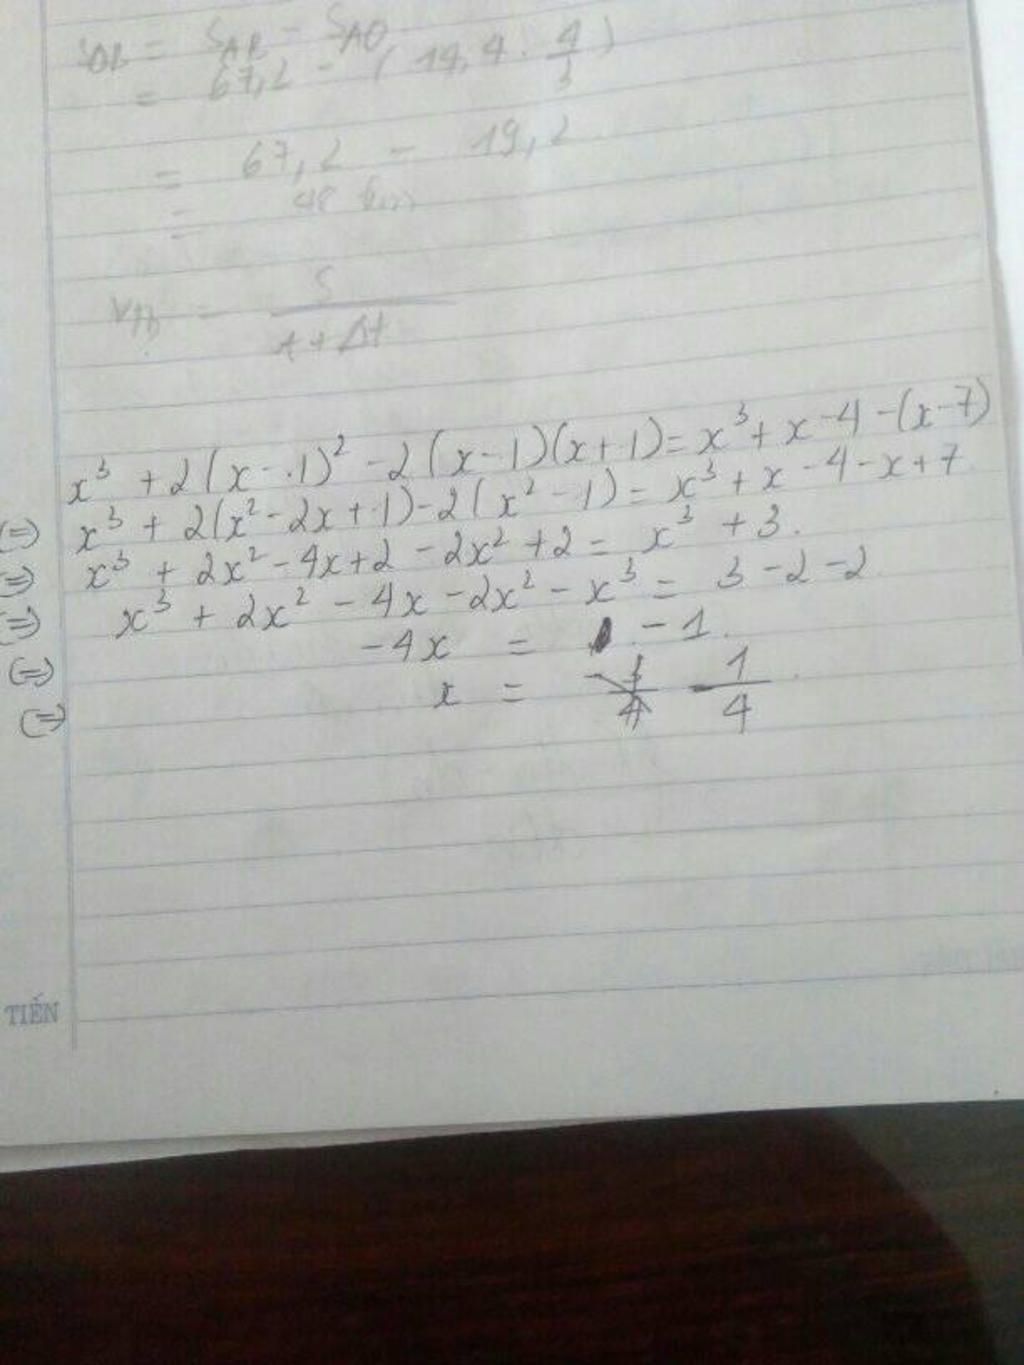 = S_AB - S_AO
= 67,2 - (14,4 . 4/3)
= 67,2 - 19,2
= 48 km
= S/(t + Δt)
x³ + 2(x - 1)² - 2(x - 1)(x + 1) = x³ + x - 4 - (x - 7)
(=) x³ + 2(x² - 2x + 1) - 2(x² - 1) = x³ + x - 4 - x + 7
(=) x³ + 2x² - 4x + 2 - 2x² + 2 = x³ + 3.
(=) x³ + 2x² - 4x - 2x² - x³ = 3 - 2 - 2
(=) -4x = -1.
(=) x = 1/4
TIẾN